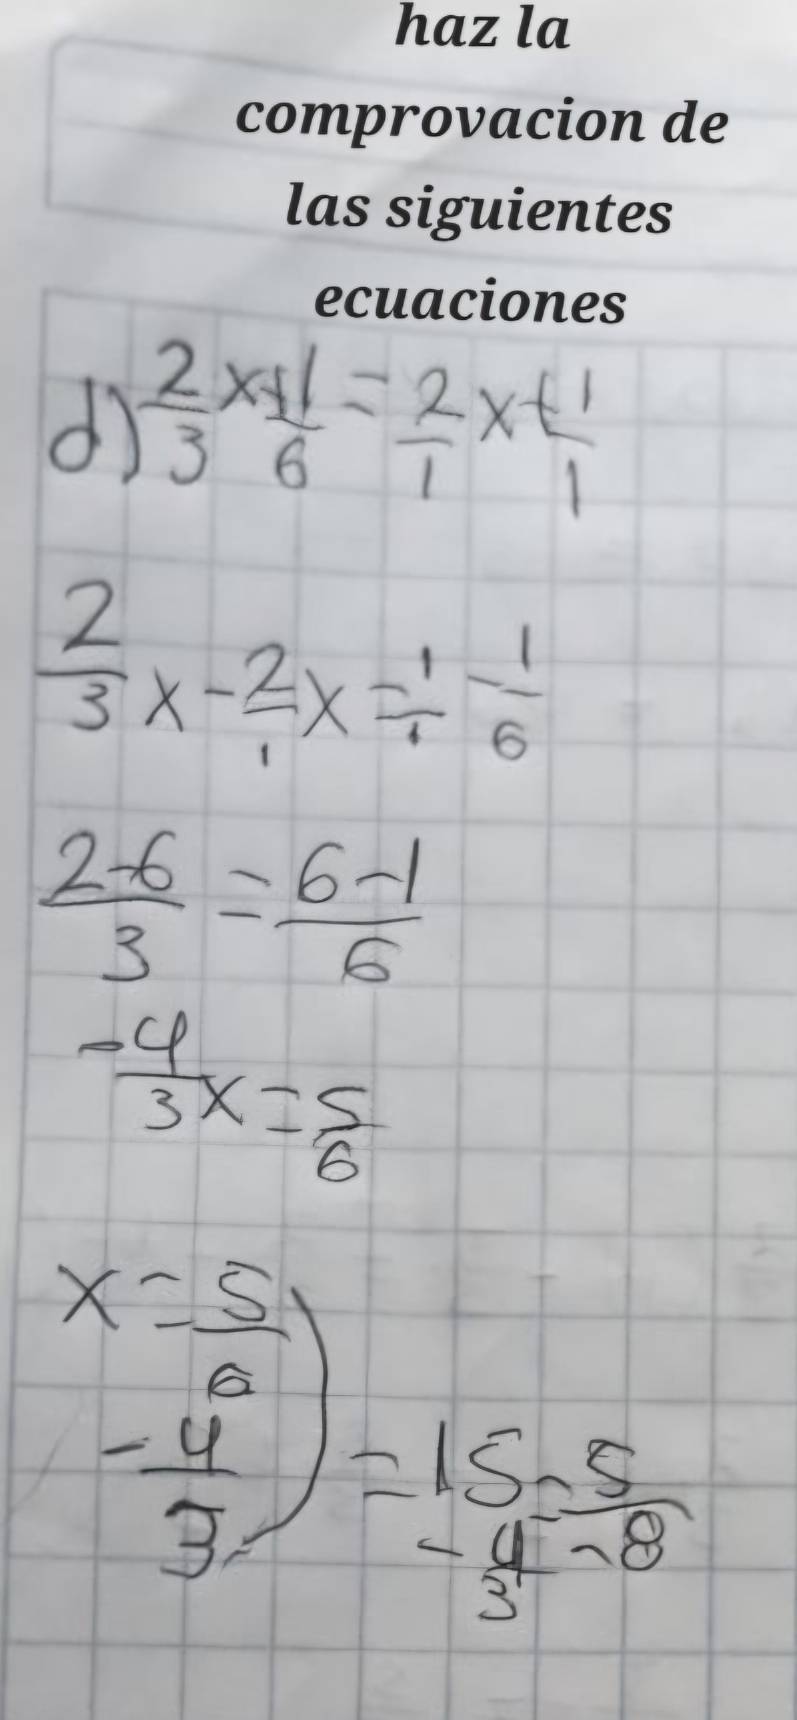 haz la
comprovacion de
las siguientes
ecuaciones
d) 2/3 x + 1/6 = 2/1 x + 1/1
2/3 x - 2/1 x = 1/1 - 1/6
2-6/3 = 6-1/6
-4/3 x = 5/6
x = 5/6
-4/3 = 15 = 5/-8